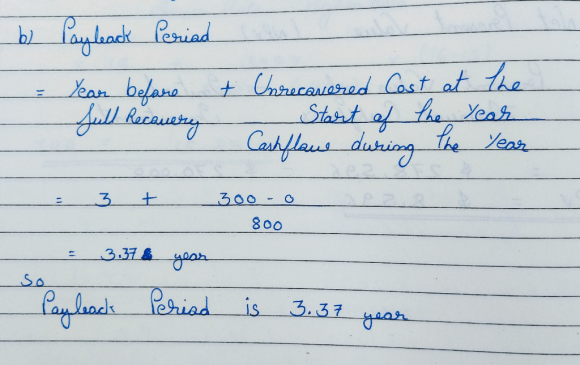 b) Payback Period
= Year before + Unrecovered Cost at the
full Recovery Start of the Year
Cashflow during the Year
= 3 + 300 - 0
800
= 3.37 year
So
Payback Period is 3.37 year